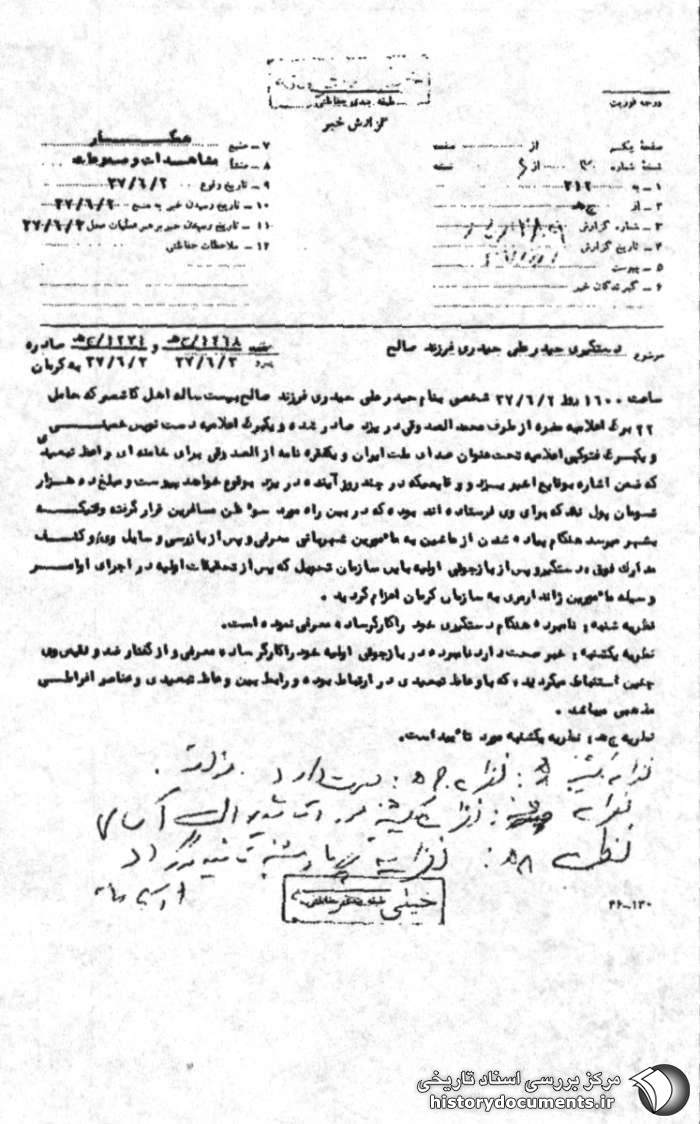 طبقه بندی حفاظتی
درجه فوریت
گزارش خبر
صفحه یکم از صفحه
نسخه شماره از نسخه
۱ ـ به ۳۱۲
۲ ـ از
۳ ـ شماره گزارش
۴ ـ تاریخ گزارش
۵ ـ پیوست
۶ ـ گیرندگان خبر
۷ ـ منبع همکار
۸ ـ منشأ مشاهدات و مسموعات
۹ ـ تاریخ وقوع ۳۷/۶/۲
۱۰ ـ تاریخ رسیدن خبر به منبع ۳۷/۶/۲
۱۱ ـ تاریخ رسیدن خبر برهبر عملیات محل ۳۷/۶/۲
۱۲ ـ ملاحظات حفاظتی
موضوع دستگیری حیدر علی حیدری فرزند صالح
و صادره
۳۷/۶/۳ ۳۷/۶/۳ به کرمان
ساعت ۱۶۰۰ روز ۳۷/۶/۲ شخصی بنام حیدر علی حیدری فرزند صالح بیست ساله اهل کاشمر که حامل
۲۲ برگ اعلامیه مضره از طرف محمد الصدوقی در یزد صادر شده و یکبرگ اعلامیه دست نویس خمینی
و یکبرگ فتوکپی اعلامیه تحت عنوان صدای ملت ایران و یکفقره نامه از الصدوقی برای خامنه ای واعظ تبعیدی
که ضمن اشاره بوقایع اخیر یزد و وقایعیکه در چند روز آینده در یزد بوقوع خواهد پیوست و مبلغ ده هزار
تومان پول نقد که برای وی فرستاده اند بوده که در بین راه مورد سوء ظن مسافرین قرار گرفته وقتیکه
بشهر میرسد هنگام پیاده شدن از ماشین به مامورین شهربانی معرفی و پس از بازرسی وسایل وی و کشف
مدارک فوق دستگیر و پس از بازجوئی اولیه باین سازمان تحویل که پس از تحقیقات اولیه در اجرای اوامر
وسیله مامورین ژاندارمری به سازمان کرمان اعزام گردید .
نظریه شنبه : نامبرده هنگام دستگیری خود را کارگر ساده معرفی نموده است.
نظریه یکشنبه : خبر صحت دارد نامبرده در بازجوئی اولیه خود را کارگر ساده معرفی و از گفتار ضد و نقیض وی
چنین استنباط میگردید که با وعاظ تبعیدی در ارتباط بوده و رابط بین وعاظ تبعیدی و عناصر افراطی
مذهبی میباشد .
نظریه یکشنبه مورد تائید است.
خیلی
طبقه بندی حفاظتی
۳۶-۱۳۰
مرکز بررسی اسناد تاریخی
historydocuments.ir